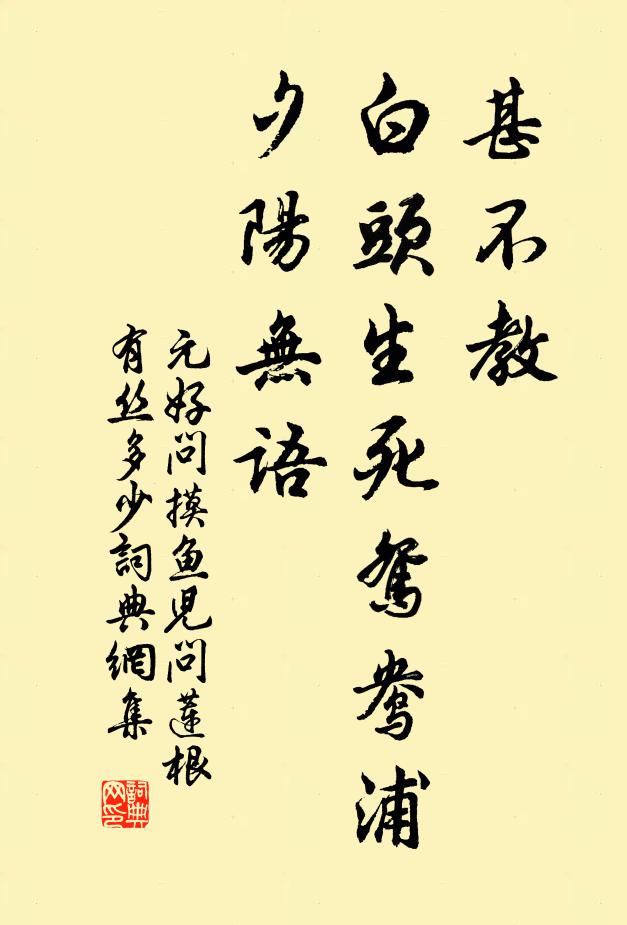 甚不教
白頭生死鴛鴦浦
夕陽無語
元好問摸魚児問蓮根
有丝多少詞典網集
詞典
网印